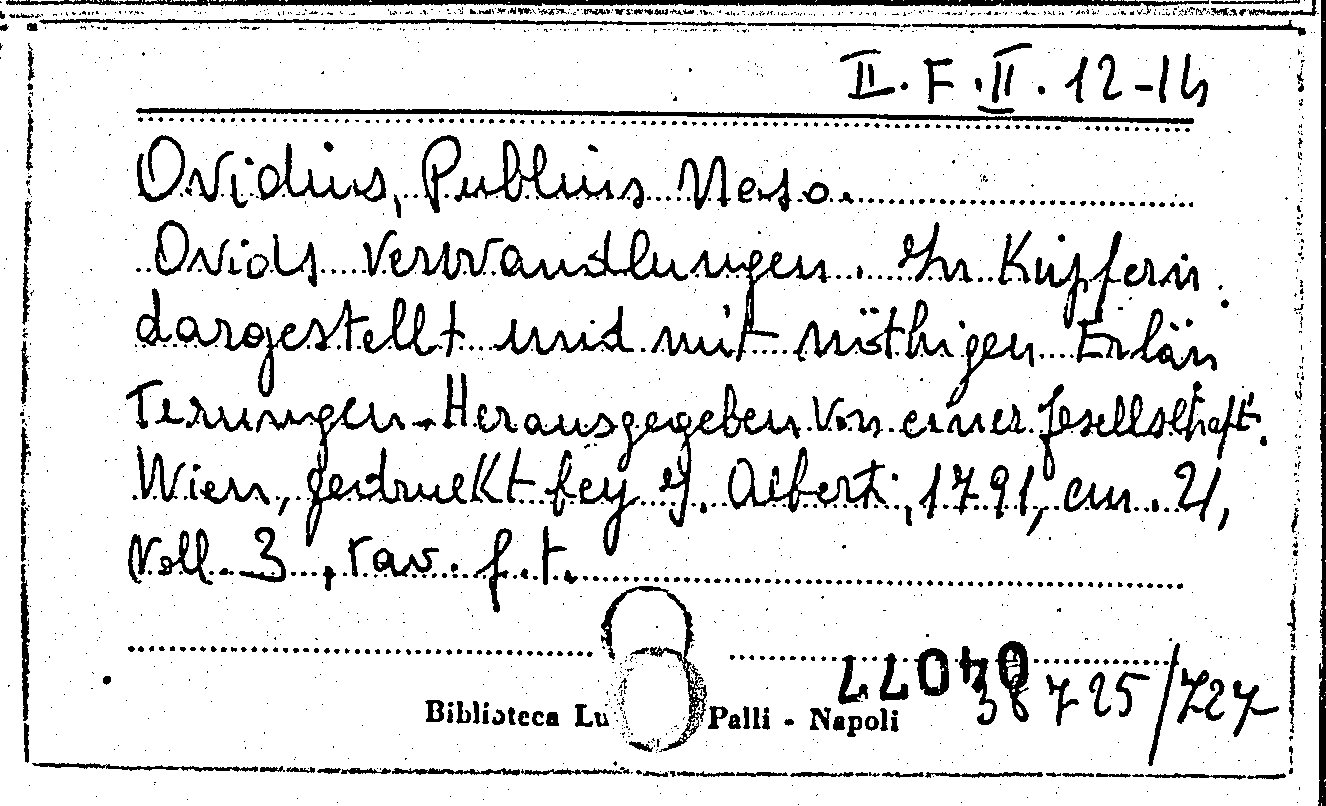 II. F. II. 12-14
Ovidius, Publius Naso.
Ovids Verwandlungen. In Kupfern
dargestellt und mit nöthigen Erläu
terungen Herausgegeben von einer Gesellschaft.
Wien, gedruckt bey J. Alberti, 1791, cm. 21,
Voll. 3, tav. f. t.
38725/727
Biblioteca Lu Palli - Napoli